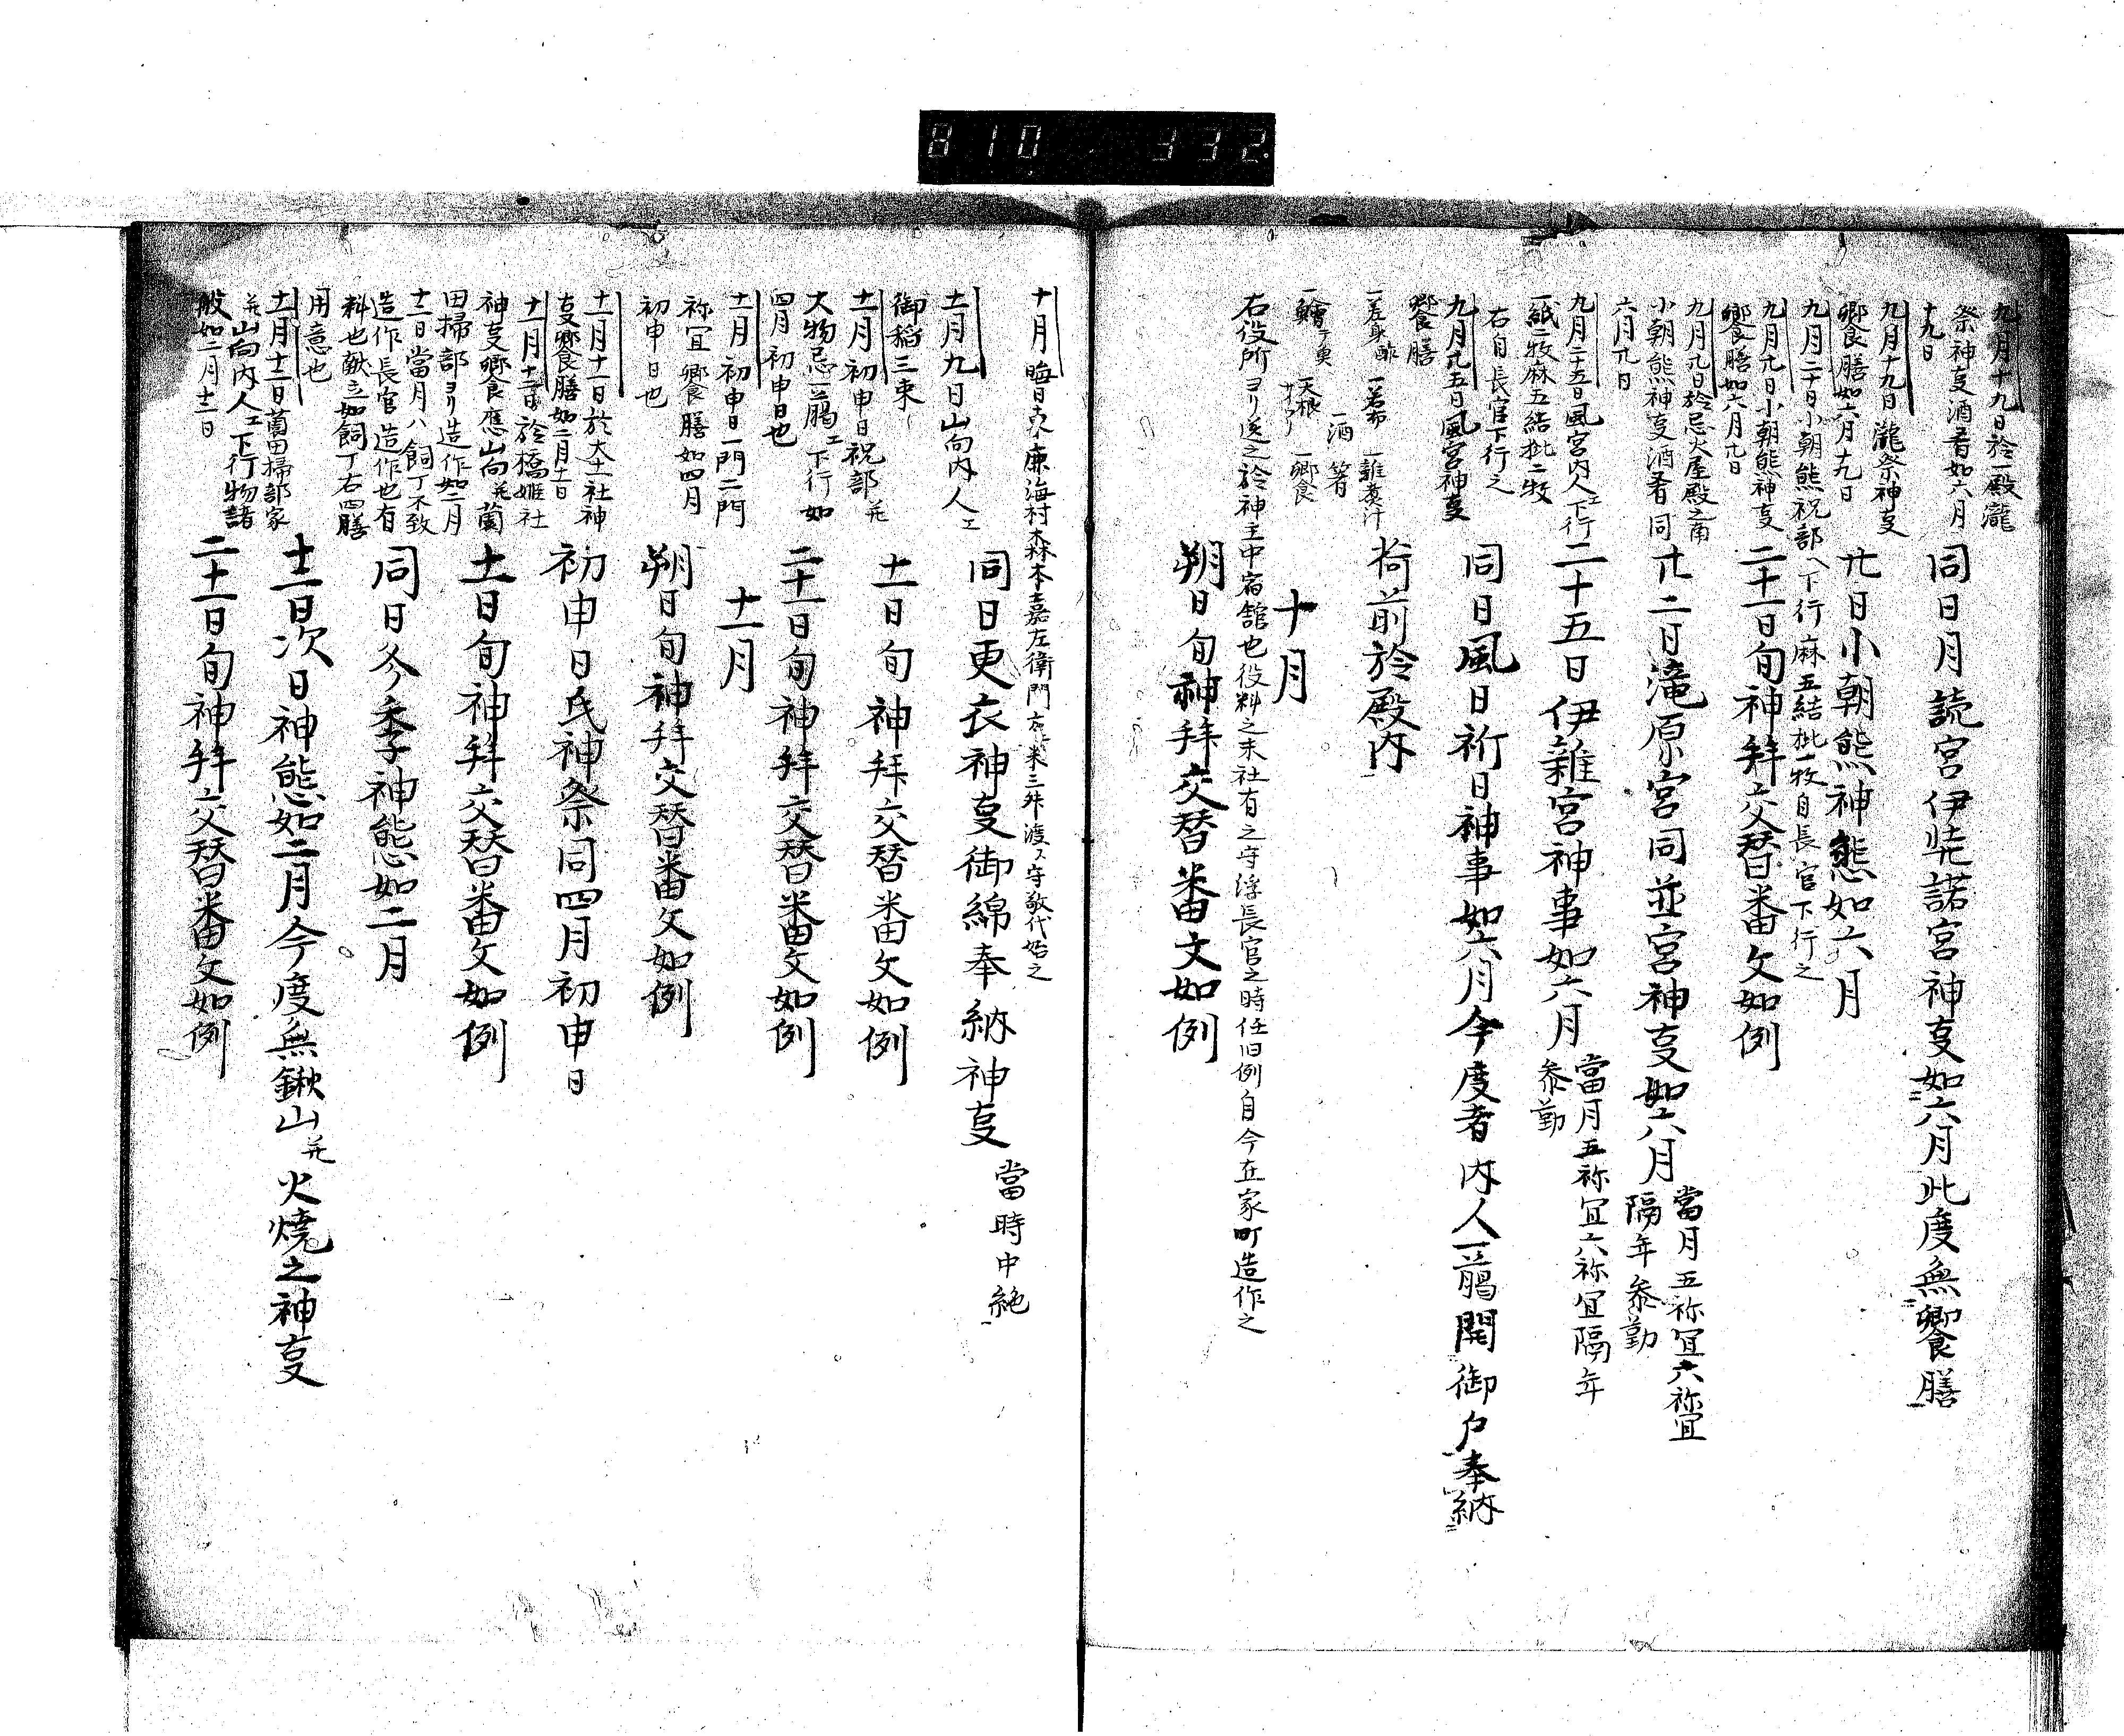 810 332
九月十九日於一殿瀧
祭神事酒肴如六月
十九日
同日月読宮伊弉諾宮神事如六月此度無饗膳
九月十九日瀧祭神事
饗膳如六月十九日
廿日小朝熊神態如六月
九月二十日小朝熊祝部ヘ下行麻五結批一牧自長官下行之
九月廿日小朝熊神事
饗膳如六月廿日
二十一日旬神拜交替番文如例
九月廿日於忌火屋殿之南
小朝熊神事酒肴同
六月廿日
廿二日滝原宮同並宮神事如六月
當月五祢宜六祢宜
隔年参勤
九月二十五日風宮内人エ下行
一紙二牧麻五結批二牧
右自長官下行之
二十五日伊雜宮神事如六月
當月五祢宜六祢宜隔年
参勤
九月廿五日風宮神事
饗膳
同日風日祈日神事如六月今度者内人一﨟開御戸奉納
一差身酢 一若布 一雜煮汁
荷前於殿内
一酒 箸
一鱠 一大根 一饗食
十月
右役所ヨリ送之於神主中宿舘也役料之末社有之守浮長官之時任旧例自今在家町造作之
朔日旬神拜交替番文如例
十月晦日 海村森本嘉左衛門 米三舛渡ス守敬代始之
同日更衣神事御綿奉納神事
當時中絶
十一月九日山向内人エ
御稲三束
十一日旬神拜交替番文如例
十一月初申日祝部并
大物忌一﨟エ下行如
四月初申日也
二十一日旬神拜交替番文如例
十一月
十一月初申日一門二門
祢宜饗膳如四月
初申日也
朔日旬神拜交替番文如例
初申日氏神祭同四月初申日
十一月十一日於大土社神
事饗膳如二月十一日
十一日旬神拜交替番文如例
十一月十二日於橋姫社
神事饗食應山向并薗
田掃部ヨリ造作如二月
十二日當月ハ飼丁不致
造作長官造作也有
料也献立如飼丁右四膳
用意也
同日冬季神態如二月
十一月十二日薗田掃部家
并山向内人エ下行物諸
般如二月十二日
十二日次日神態如二月今度無鍬山并火燒之神事
二十一日旬神拜交替番文如例